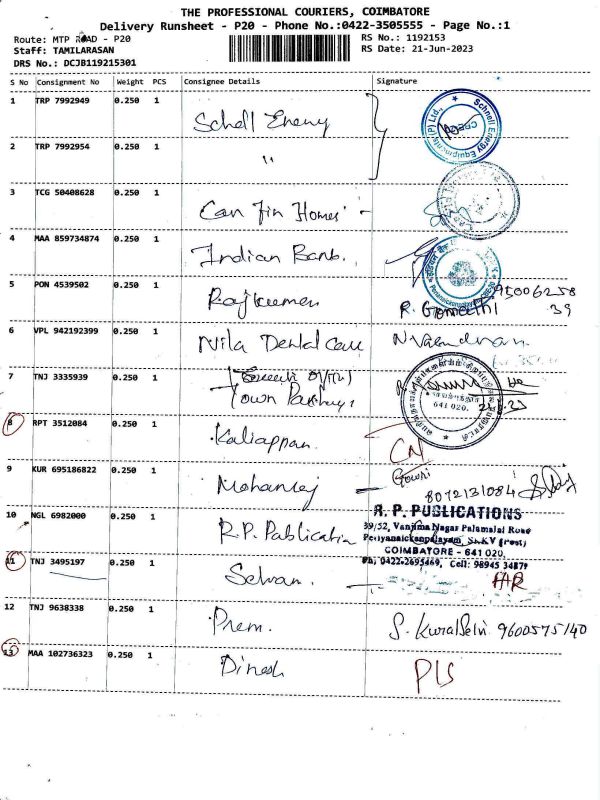 THE PROFESSIONAL COURIERS, COIMBATORE
Delivery Runsheet - P20 - Phone No.:0422-3505555 - Page No.:1
Route: MTP ROAD - P20
RS No.: 1192153
Staff: TAMILARASAN
RS Date: 21-Jun-2023
DRS No.: DCJB119215301
S No Consignment No Weight PCS Consignee Details Signature
1 TRP 7992949 0.250 1 Schell Energy
Schnell Energy Equipments(P) Ltd.,
2 TRP 7992954 0.250 1 "
3 TCG 50408628 0.250 1 Can Fin Homes -
4 MAA 859734874 0.250 1 Indian Bank.
5 PON 4539502 0.250 1 Rajkumar R. Gomathi
39
6 VPL 942192399 0.250 1 Nila Dental Care
7 TNJ 3335939 0.250 1 Town
641 020.
8 RPT 3512084 0.250 1 Kaliappan. CN
Gowri
9 KUR 695186822 0.250 1 Mohanraj - 8072131084
10 NGL 6982000 0.250 1 R.P. Publication
R. P. PUBLICATIONS
39/52, Vanjima Nagar Palamalai Road
Periyanaickenpalayam, S.R.K.V (Post)
COIMBATORE - 641 020.
Ph; 0422-2695469, Cell: 98945 34871
11 TNJ 3495197 0.250 1 Selvan.
12 TNJ 9638338 0.250 1 Prem. S. KuralSelvi 9600575140
13 MAA 102736323 0.250 1 Dinesh PLS